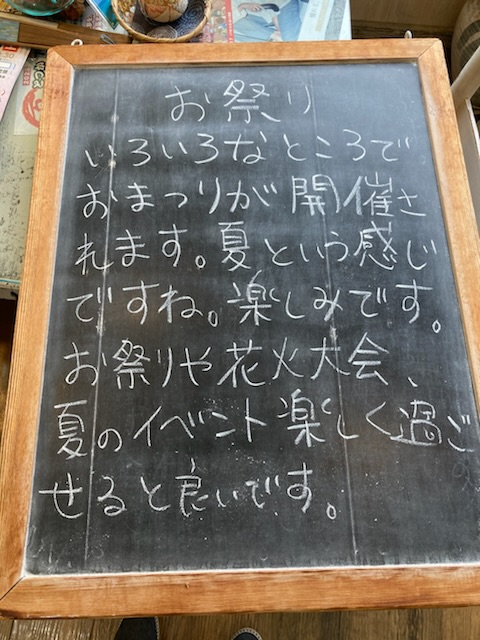 お祭り
いろいろなところで
おまつりが開催さ
れます。夏という感じ
ですね。楽しみです。
お祭りや花火大会、
夏のイベント楽しく過ご
せると良いです。